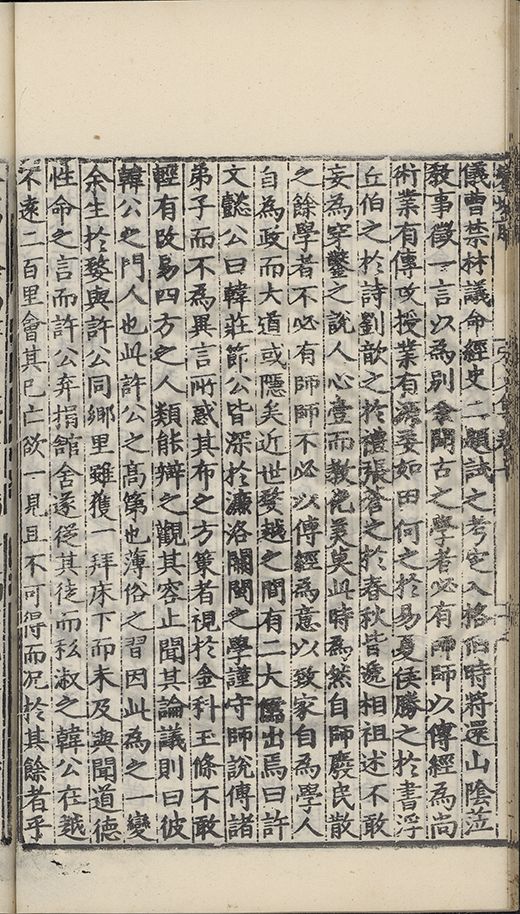 儀曹禁林議命經史二題試之考定入格伯時將還山陰泣
敘事徵一言以為別余聞古之學者必有師師以傳經為尚
術業有傳攻授業有源委如田何之於易夏侯勝之於書浮
丘伯之於詩劉歆之於禮張蒼之於春秋皆遞相祖述不敢
妄為穿鑿之說人心壹而教化美莫此時為然自師廢民散
之餘學者不必有師師不必以傳經為意以致家自為學人
自為政而大道或隱矣近世婺越之間有二大儒出焉曰許
文懿公曰韓莊節公皆深於濂洛關閩之學謹守師說傳諸
弟子而不為異言所惑其布之方策者視於金科玉條不敢
輕有改易四方之人類能辯之觀其容止聞其論議則曰彼
韓公之門人也此許公之高第也薄俗之習因此為之一變
余生於婺與許公同鄉里雖獲一拜床下而未及與聞道德
性命之言而許公弃捐館舍遂從其徒而私淑之韓公在越
不遠二百里會其已亡欲一見且不可得而況於其餘者乎